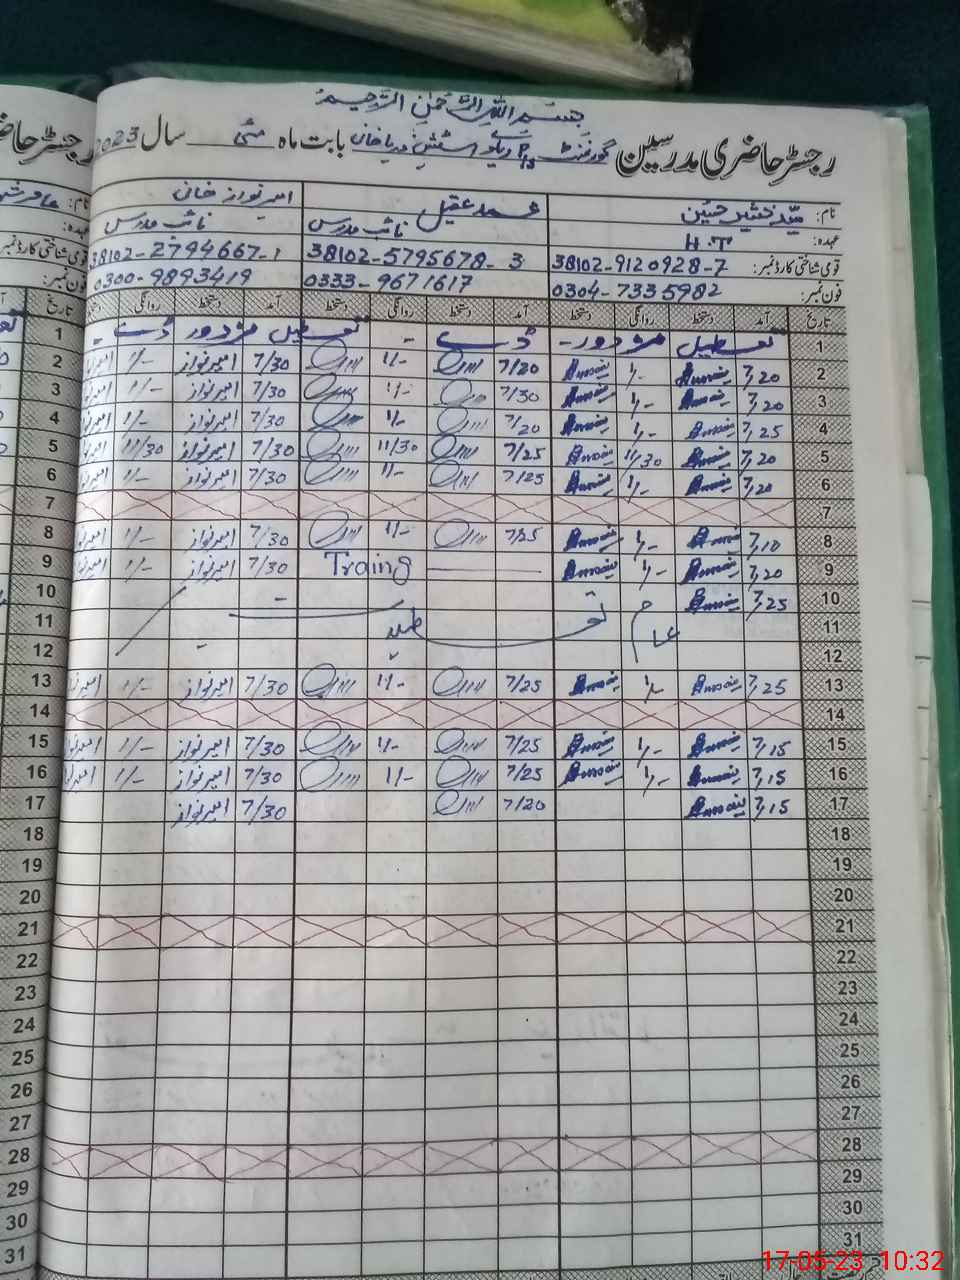 بِسْمِ اللّٰہِ الرَّحْمٰنِ الرَّحِیْمِ
رجسٹر حاضری مدرسین گورنمنٹ P/S ریلوے اسٹیشن دریا خان بابت ماہ مئی سال 2023
نام: سید مبشر حسین محمد عقیل امیر نواز خان
عہدہ: H.T نائب مدرس نائب مدرس
قومی شناختی کارڈ نمبر: 38102-9120928-7 38102-5795678-3 38102-2794667-1
فون نمبر: 0304-7335982 0333-9671617 0300-9893419
تاریخ آمد دستخط روانگی دستخط آمد دستخط روانگی دستخط آمد دستخط روانگی دستخط تاریخ
1 تعطیل مزدور ڈے تعطیل مزدور ڈے 1
2 7,20 1/- 7/20 1/- 7/30 امیرنواز 1/- 2
3 7,20 1/- 7/30 1/- 7/30 امیرنواز 1/- 3
4 7,25 1/- 7/20 1/- 7/30 امیرنواز 1/- 4
5 7,20 11/30 7/25 11/30 7/30 امیرنواز 11/30 5
6 7,20 1/- 7/25 1/- 7/30 امیرنواز 1/- 6
7 7
8 7,10 1/- 7/25 1/- 7/30 امیرنواز 1/- 8
9 7,20 1/- Traing 7/30 امیرنواز 1/- 9
10 7,25 10
11 عام تعطیل 11
12 12
13 7,25 1/- 7/25 1/- 7/30 امیرنواز 1/- 13
14 14
15 7,15 1/- 7/25 1/- 7/30 امیرنواز 1/- 15
16 7,15 1/- 7/25 1/- 7/30 امیرنواز 1/- 16
17 7,15 7/20 7/30 امیرنواز 17
18 18
19 19
20 20
21 21
22 22
23 23
24 24
25 25
26 26
27 27
28 28
29 29
30 30
31 31
17-05-23 10:32